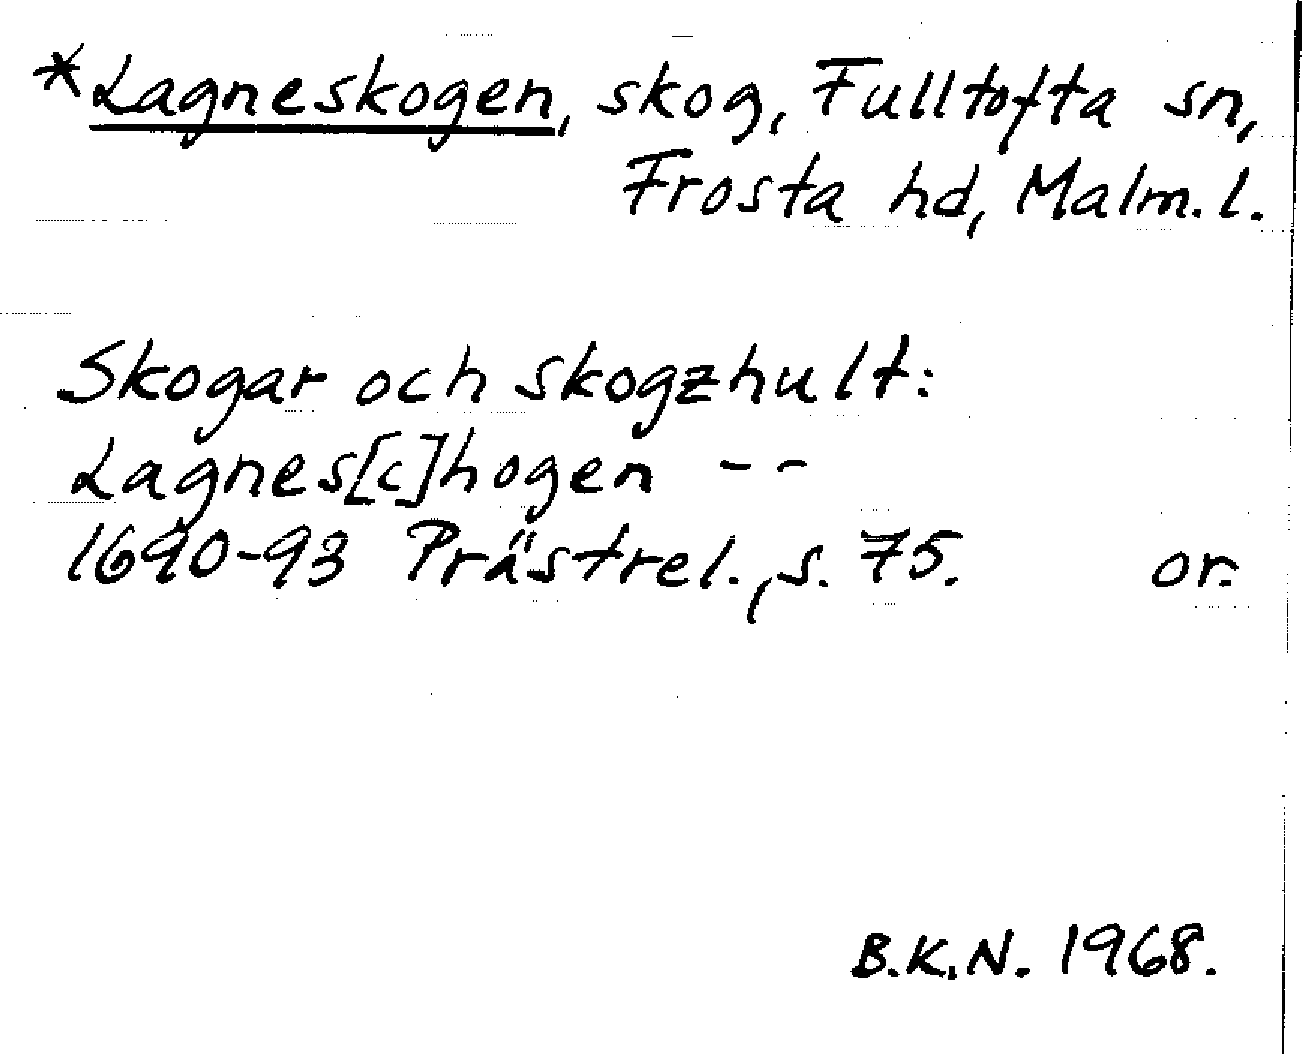 *Lagneskogen, skog, Fulltofta sn,
Frosta hd, Malm. l.
Skogar och skogzhult:
Lagnes[c]hogen - -
1690-93 Prästrel., s. 75. or.
B.K.N. 1968.